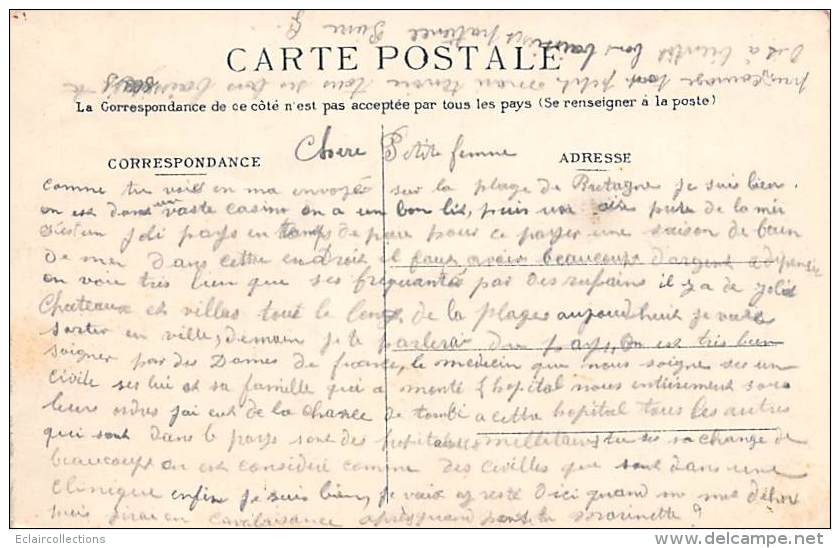 CARTE POSTALE
La Correspondance de ce côté n'est pas acceptée par tous les pays (Se renseigner à la poste)
CORRESPONDANCE
ADRESSE
Chere Petite femme
comme tu vois on ma envoyé sur la plage de Bretagne je suis bien
on est dans un vaste casino on a un bon lit, puis un air pure de la mer
s'est un joli pays en temps de paix pour ce payer une saison de bain
de mer dans cette endroit il faut avoir beaucoup d'argent a dépenser
on voie très bien que ses fréquantés par des il y a de jolis
Chateaux et villas tout le long de la plage aujourdhuit je vais
sortir en ville, demain je te parlerai du pays, on est très bien
soigner par des Dames de france, le médecin que nous soigne ses un
civile ses lui et sa famille qui a monté l hopital nous entièrement sous
leurs ordres jai eut de la chance de tombé a cette hopital tous les autres
qui sont dans le pays sont des hopitaux millitaire tu ses sa change de
beaucoup on est considéré comme des civilles que sont dans une
clinique enfin je suis bien, je vais resté ici quand on me
puis jirai en convalaisance après quand pense la Marinette ?
prix courage tout petit tous ses bons baisers
Dit à bientôt bons baisers patience Pierre
Eclaircollections
delcampe.net